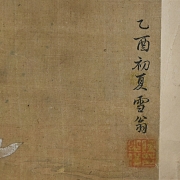 乙酉初夏雪翁